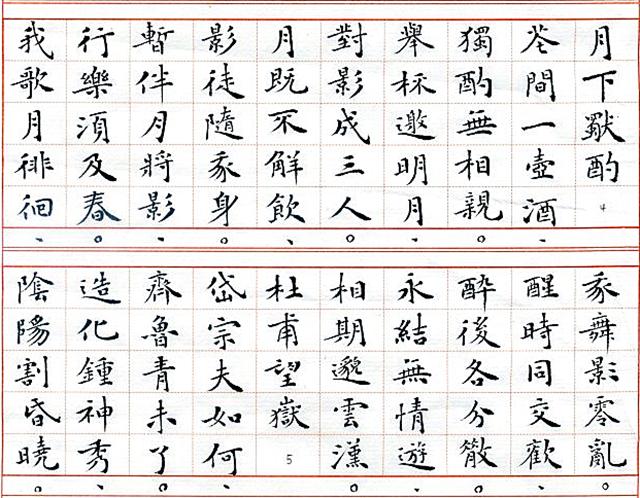 月下獨酌 4
花間一壺酒、
獨酌無相親。
舉杯邀明月、
對影成三人。
月既不解飲、
影徒隨我身。
暫伴月將影、
行樂須及春。
我歌月徘徊、
我舞影零亂。
醒時同交歡、
醉後各分散。
永結無情遊、
相期邈雲漢。
杜甫望嶽 5
岱宗夫如何、
齊魯青未了。
造化鍾神秀、
陰陽割昏曉。